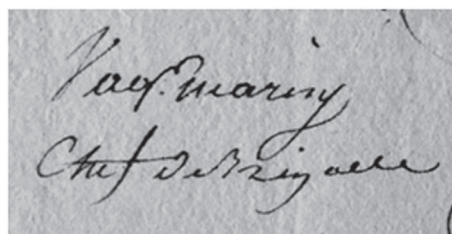 Jaq. mariny
Chef de Brigade